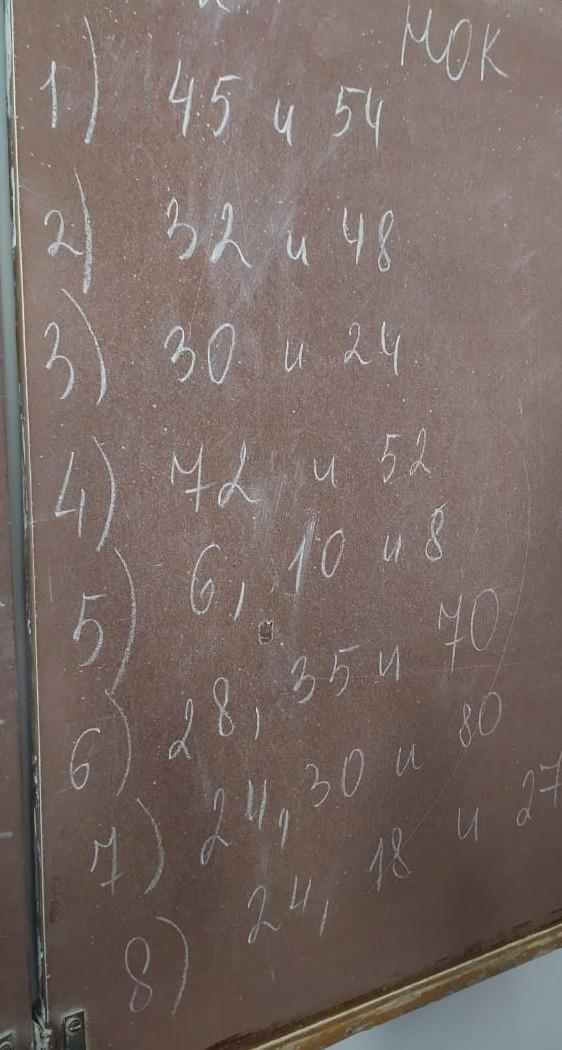 НОК
1) 45 и 54
2) 32 и 48
3) 30 и 24
4) 72 и 52
5) 6, 10 и 8
6) 28, 35 и 70
7) 24, 30 и 80
8) 24, 18 и 27